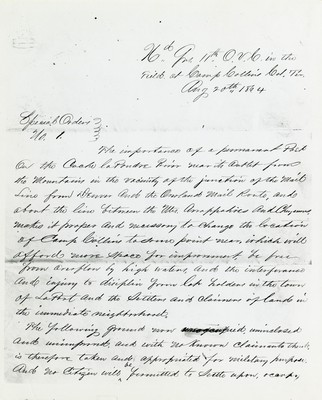 Hd Qrs 11th O.V.C. in the
Field at Camp Collins Col. Ter.
Aug 20th 1864
Special Orders
No. 1
The importance of a permanent Post
On the Cache La Poudre River near its outlet from
the Mountains in the vicinity of the junction of the Mail
Line from Denver And the Overland Mail Route, and
about the line between the Arrappahoes And Cheyennes,
makes it proper and necessary to change the location
of Camp Collins to some point near, which will
afford more space for improvement, be free
from overflow by high waters, and the interference
and injury to disciplin from lot holders in the town
of LaPort And the Settlers and Claimers of lands in
the immediate neighborhood;
The following ground now unoccupied, uninclosed
And unimproved, and with no known claimants thereto
is therefore taken and appropriated for military purpose
And no Citizen will be permitted to Settle upon, occupy,